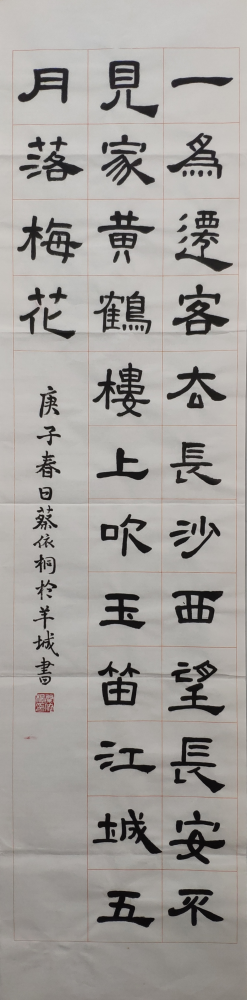 一為遷客去長沙西望長安不
見家黃鶴樓上吹玉笛江城五
月落梅花
庚子春日蔡依桐於羊城書